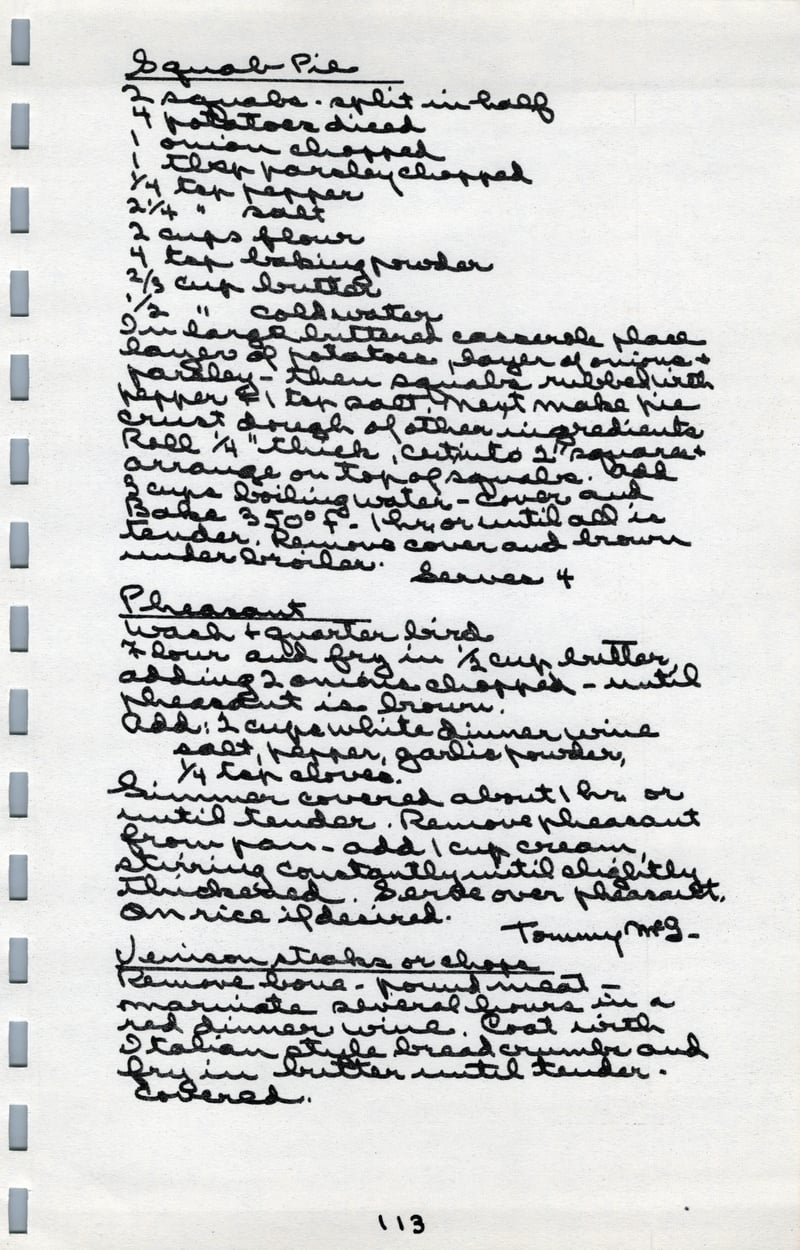 Squab Pie
2 squabs - split in half
4 potatoes diced
1 onion chopped
1 tbsp parsley chopped
1/4 tsp pepper
2 1/4 " salt
2 cups flour
4 tsp baking powder
2/3 cup butter
1/2 " cold water
In large buttered casserole place
layer of potatoes, layer of onions +
parsley - then squabs rubbed with
pepper & 1 tsp salt. Next make pie
crust dough of other ingredients
Roll 1/4" thick, cut into 2" squares +
arrange on top of squabs. Add
3 cups boiling water - cover and
Bake 350° F - 1 hr, or until all is
tender. Remove cover and brown
under broiler.
Serves 4
Pheasant
Wash + quarter bird
Flour and fry in 1/2 cup butter,
adding 2 onions chopped - until
pheasant is brown.
Add: 2 cups white dinner wine
salt, pepper, garlic powder,
1/4 tsp cloves.
Simmer covered about 1 hr. or
until tender. Remove pheasant
from pan - add 1 cup cream,
stirring constantly until slightly
thickened. Serve over pheasant.
On rice if desired.
Tommy McG-
Venison steaks or chops
Remove bone - pound meat -
marinate several hours in a
red dinner wine. Coat with
Italian style bread crumbs and
fry in butter until tender.
Covered.
113